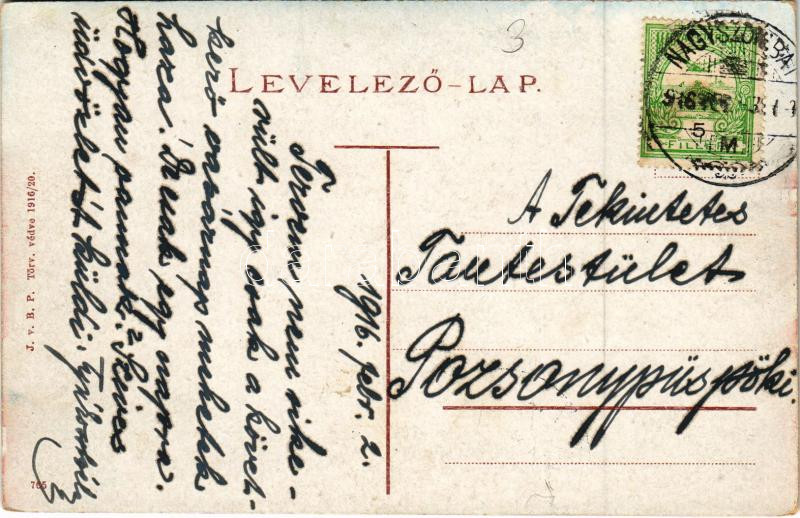 3
LEVELEZŐ-LAP.
NAGYSZOMBAT
916
5
M
FILLÉR
A Tekintetes
Tantestület
Pozsonypüspöki.
1916. febr. 2.
Tervem, nem sike-
rült így csak a követ-
kező vasárnap mehetek
haza. És csak egy napra.
Hogyan vannak? Szíves
üdvözletét küldi:
J. v. B. P. Törv. védve 1916/20.
765